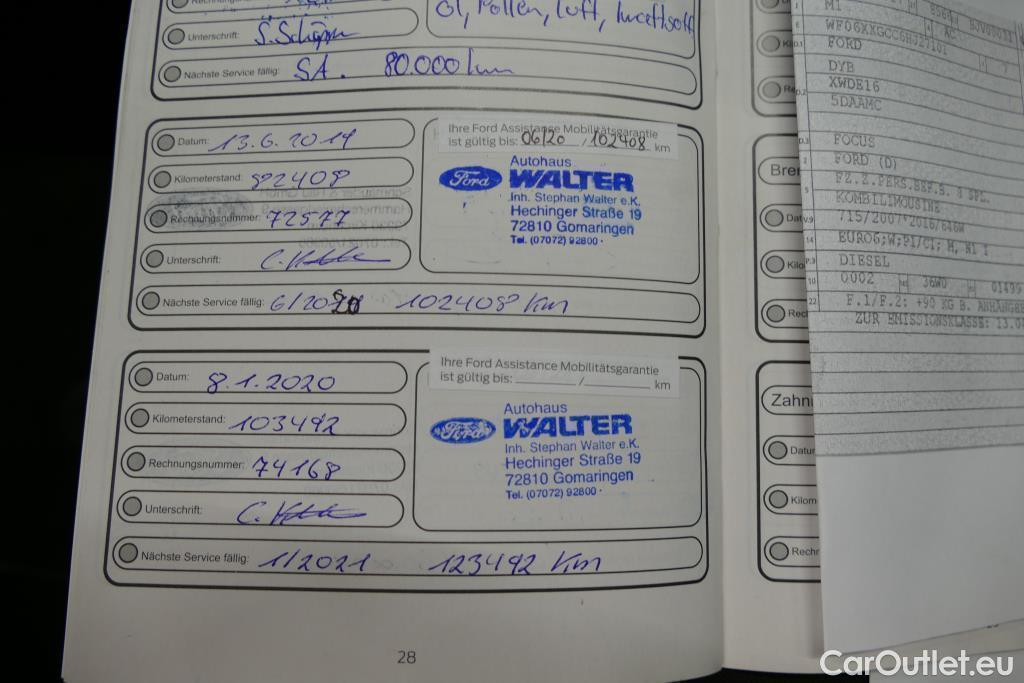 Öl, Pollen, Luft,
Unterschrift:
Nächste Service fällig: SA. 80.000 km
Datum: 13.6.2019
Kilometerstand: 82408
Rechnungsnummer: 72577
Unterschrift:
Nächste Service fällig: 6/2020 102408 Km
Ihre Ford Assistance Mobilitätsgarantie
ist gültig bis: 06/20 / 102408 km
Autohaus
Ford WALTER
Inh. Stephan Walter e.K.
Hechinger Straße 19
72810 Gomaringen
Tel. (07072) 92800
Datum: 8.1.2020
Kilometerstand: 103492
Rechnungsnummer: 74168
Unterschrift:
Nächste Service fällig: 1/2021 123492 Km
Ihre Ford Assistance Mobilitätsgarantie
ist gültig bis: / km
Autohaus
Ford WALTER
Inh. Stephan Walter e.K.
Hechinger Straße 19
72810 Gomaringen
Tel. (07072) 92800
28
Brem
Datu
Kilo
Rech
Zahni
Datur
Kilom
Rechn
M1
AC
FORD
DYB
XWDE16
5DAAMC
FOCUS
FORD (D)
FZ.Z.PERS.BEF.B. 8 SPL.
KOMBILIMOUSINE
715/2007*2016/646W
EURO6;W;PI/CI; M, N1 I
DIESEL
0002 36W0 01499
F.1/F.2: +90 KG B. ANHÄNGE
ZUR EMISSIONSKLASSE: 13.0
CarOutlet.eu